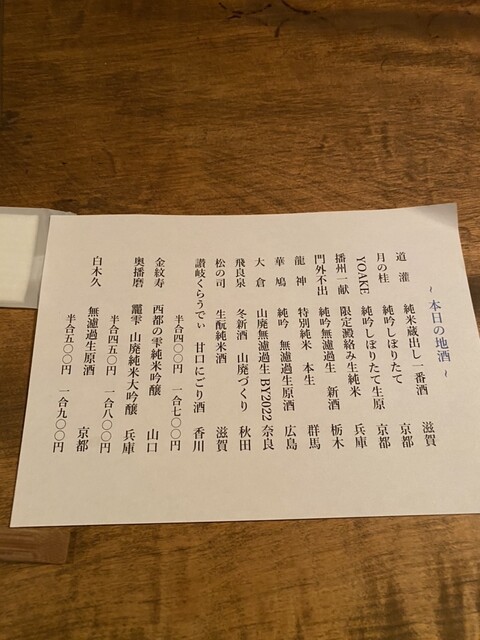 ~ 本日の地酒 ~
道灌 純米蔵出し一番酒 滋賀
月の桂 純吟しぼりたて 京都
YOAKE 純吟しぼりたて生原 京都
播州一献 限定澱絡み生純米 兵庫
門外不出 純吟無濾過生 新酒 栃木
龍神 特別純米 本生 群馬
華鳩 純吟 無濾過生原酒 広島
大倉 山廃無濾過生BY2022 奈良
飛良泉 冬新酒 山廃づくり 秋田
松の司 生酛純米酒 滋賀
讃岐くらうでぃ 甘口にごり酒 香川
半合四〇〇円 一合七〇〇円
金紋寿 西都の雫純米吟醸 山口
奥播磨 龗雫 山廃純米大吟醸 兵庫
半合四五〇円 一合八〇〇円
白木久 無濾過生原酒 京都
半合五〇〇円 一合九〇〇円